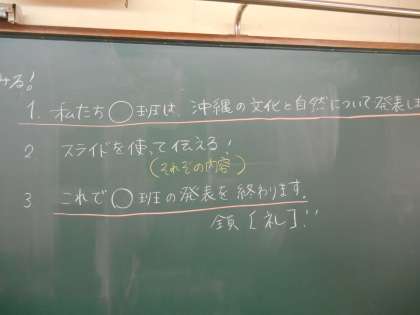 みる!
1. 私たち○班は、沖縄の文化と自然について発表しま
2 スライドを使って伝える!
(それぞの内容)
3 これで○班の発表を終わります.
全員[礼]!!